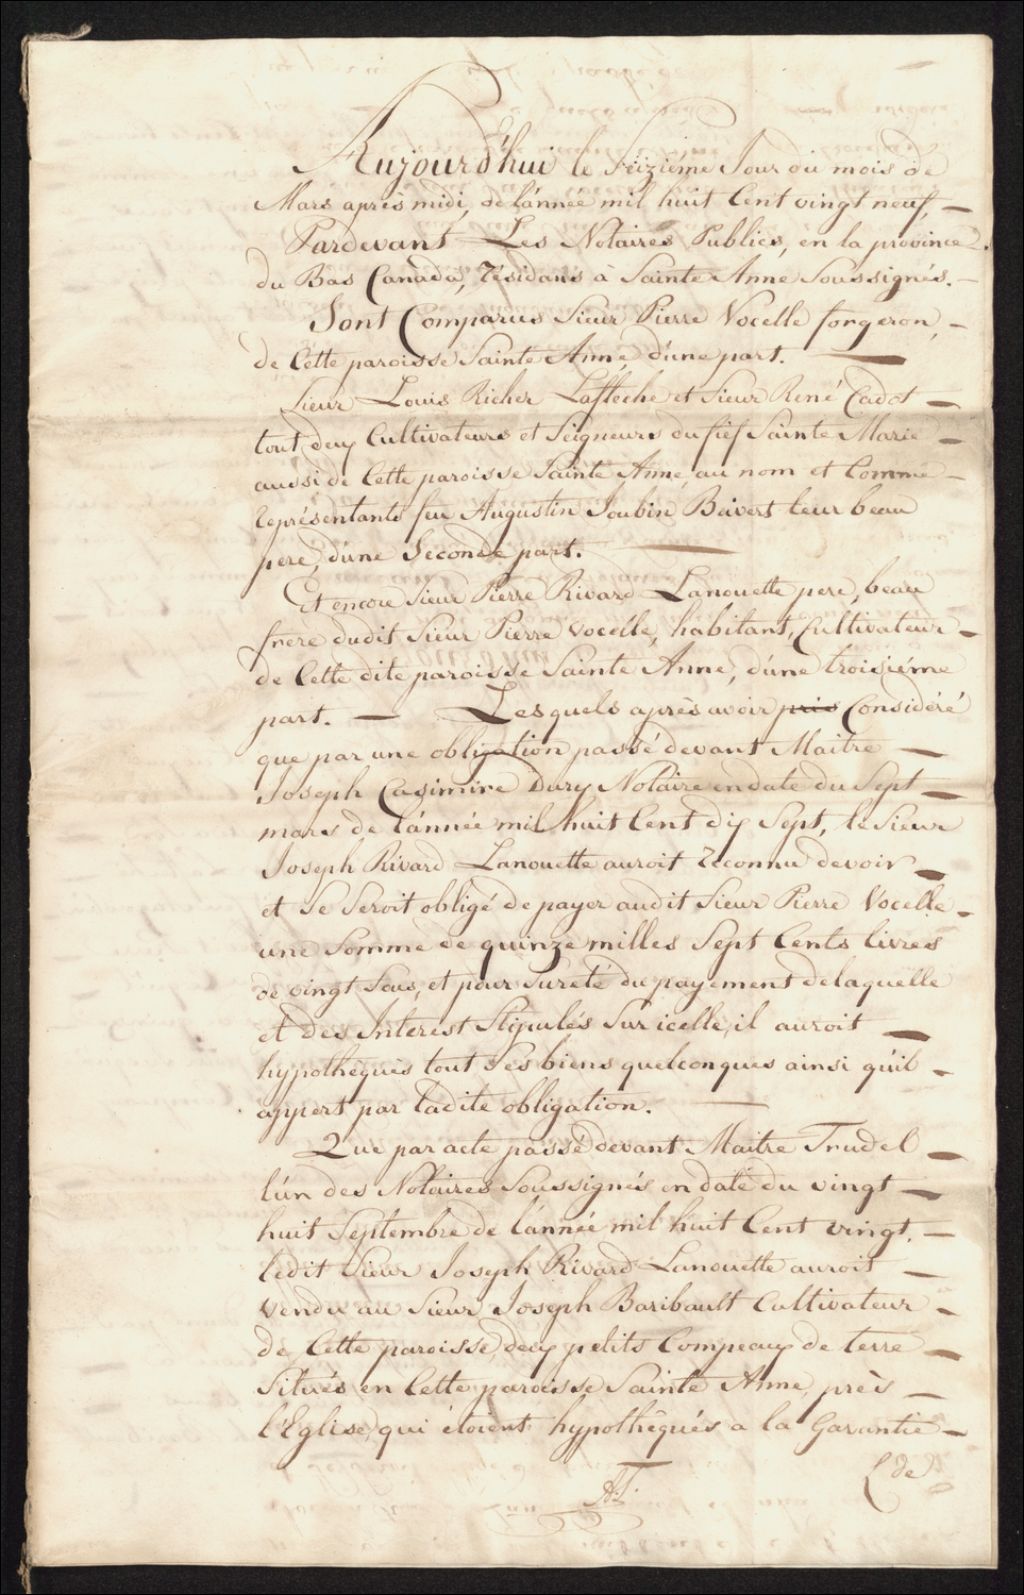 Aujourd'hui le Seizième Jour du mois de
Mars après midi, de l'année mil huit Cent vingt neuf, —
Pardevant Les Notaires Publics, en la province
du Bas Canada, Résidans à Sainte Anne Soussignés. —
Sont Comparus Sieur Pierre Vocelle forgeron, —
de Cette paroisse Sainte Anne, d'une part. —
Sieur Louis Richer Lafleche et Sieur René Cadot —
tout deux Cultivateurs et Seigneurs du fief Sainte Marie —
aussi de Cette paroisse Sainte Anne, au nom et Comme —
représentants feu Augustin Joubin Boivert leur beau
pere, d'une Seconde part. —
Et encore Sieur Pierre Rivard Lanouette pere, beau
frere dudit Sieur Pierre Vocelle, habitant, Cultivateur —
de Cette dite paroisse Sainte Anne, d'une troisiéme
part. — Lesquels après avoir pris Considéré
que par une obligation passé devant Maitre —
Joseph Casimire Dury Notaire en date du Sept —
mars de l'année mil huit Cent dix Sept, le Sieur
Joseph Rivard Lanouette auroit reconnu devoir —
et Se Seroit obligé de payer audit Sieur Pierre Vocelle —
une Somme de quinze milles Sept Cents livres
de vingt Sous, et pour Sureté du payement de laquelle
et des Interest Stipulés Sur icelle, il auroit —
hypothequés tout Ses biens quelconques ainsi qu'il —
appert par ladite obligation. —
Que par acte passé devant Maitre Trudel —
l'ún des Notaires Soussignés en date du vingt —
huit Septembre de l'année mil huit Cent vingt, —
ledit Sieur Joseph Rivard Lanouette auroit —
vendu au Sieur Joseph Baribault Cultivateur —
de Cette paroisse, deux petits Compeaux de terre —
Situés en Cette paroisse Sainte Anne, près —
l'Eglise, qui étoient hypothéqués a la Garantie —
de
A.T.